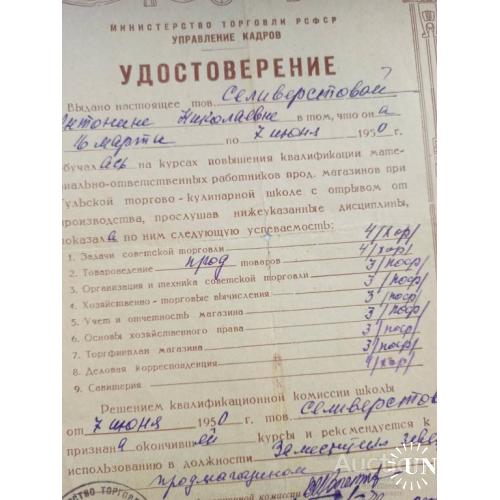 МИНИСТЕРСТВО ТОРГОВЛИ РСФСР
УПРАВЛЕНИЕ КАДРОВ
УДОСТОВЕРЕНИЕ
Выдано настоящее тов. Селиверстовой
Антонине Николаевне в том, что она
16 марта по 7 июня 1950 г.
обучалась на курсах повышения квалификации мате-
риально-ответственных работников прод. магазинов при
Тульской торгово-кулинарной школе с отрывом от
производства, прослушав нижеуказанные дисциплины,
показала по ним следующую успеваемость:
1. Задачи советской торговли 4/хор/
2. Товароведение прод товаров 4/хор/
3. Организация и техника советской торговли 3/поср/
4. Хозяйственно-торговые вычисления 3/поср/
5. Учет и отчетность магазина 3/поср/
6. Основы хозяйственного права 3/поср/
7. Торгфинплан магазина 3/поср/
8. Деловая корреспонденция 3/поср/
9. Санитария 4/хор/
Решением квалификационной комиссии школы
от 7 июня 1950 г. тов. Селиверстов
признана окончившей курсы и рекомендуется к
использованию в должности Заместителя зав
продмагазином
СТВО ТОРГОВ
Auction
UN